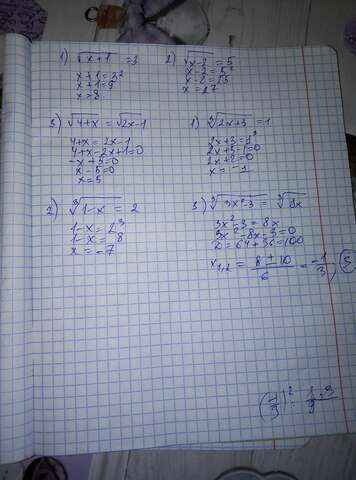 1) √x+1 = 3
x+1 = 3²
x+1 = 9
x = 8
2) √x-2 = 5
x-2 = 5²
x-2 = 25
x = 27
3) √4+x = √2x-1
4+x = 2x-1
4+x-2x+1=0
-x+5=0
x-5=0
x=5
1) ∛2x+3 = 1
2x+3=1³
2x+3-1=0
2x+2=0
x = -1
2) ∛1-x = 2
1-x = 2³
1-x = 8
x = -7
3) ∛3x²-3 = ∛8x
3x²-3 = 8x
3x²-8x-3=0
D = 64+36=100
x1,2 = 8±10/6 = -1/3; 3